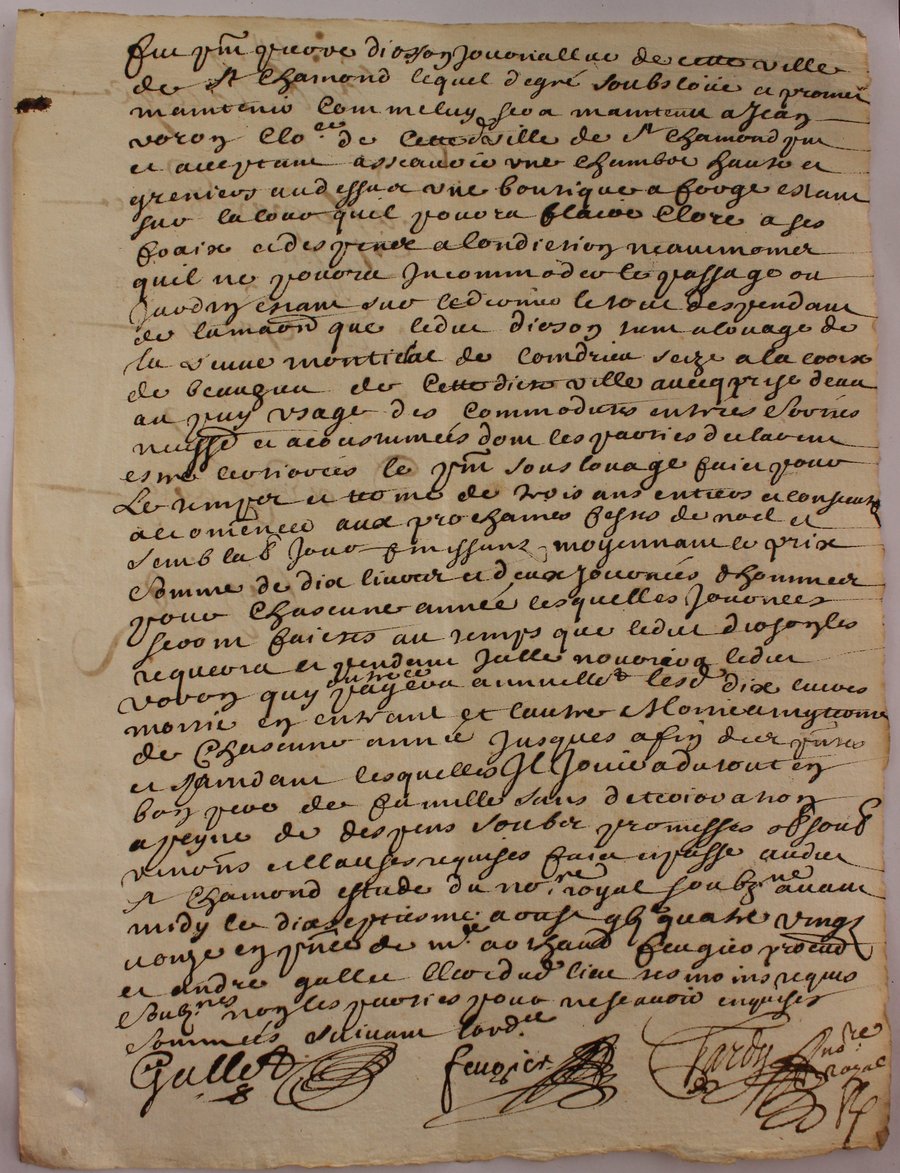 fut pnt pierre dioson jouornallier de cette ville
de St Chamond lequel de gré soubsloüe et promet
maintenir comme luy sera maintenu a Jean
voron Clo.er de cette ville de St Chamond pnt
et acceptant asscauoir vne chambre haute et
greniers au dessus vne boutique a forge estant
sur la cour quil pourra faire clore a ses
fraix et despens a condition neaumoins
quil ne pourra Incommoder le passage ou
Jardin estant sur le derrier le tout despendant
de la maison que ledict dioson tient a louage de
la veuue de Condrieu size a la croix
de beaujeu de cette dicte ville auecq prise deau
au puy vsage des commodites entrées sorties
neuffe et acoustumées dont les parties declarent
estre le pnt souslouage faict pour
Le temps et terme de trois ans entiers et consecutifs
a commencer aux prochaines festes de noel et
semblable Jour finissant, moyennant le prix
somme de dix liures et deux journées dhommes
pour chascune année lesquelles Journées
seront faictes au temps que ledict dioson les
requerra et pendant Icelle nourrira ledict
voron quy outre ce payera annuellemt lesd dix liures
moitie en entrant et lautre Moitie a my terme
de Chascune année Jusques a fin des pntes
et pendant lesquelles Il Jouira du tout en
bon pere de famille sans deterioration
a peyne de despens soubz promesses obl soub
renons et clauses requises faict et passé audict
St Chamond estude du no.re royal soubz.ne auant
midy le dixseptiesme aoust gbjc quatre vingz
unze en pnce de m.e archaud feugier procud
et andré gallet clerc dud lieu tesmoins requis
soubz.nes non les parties pour ne scauoir enquises
sommées suiuant lord.ce
Gallet feugier Tardy no.re royal